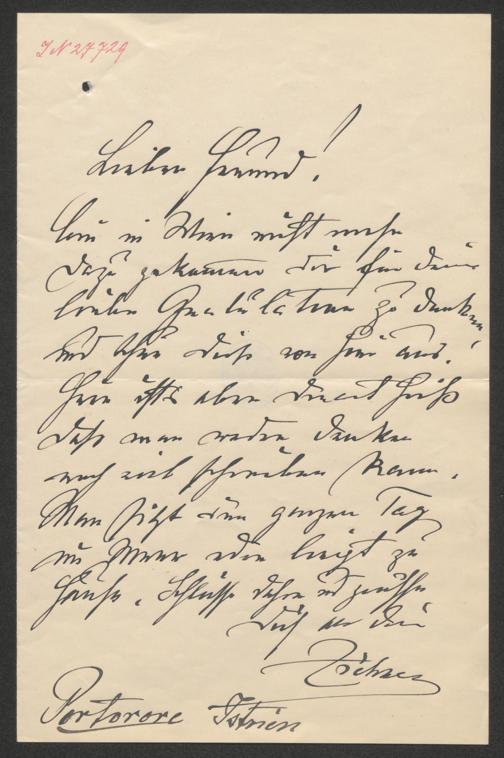 IN 27729
Lieber Freund!
bin in Wien nicht mehr
dazu gekommen dir für deine
lieben Gratulation zu danken
und thue dieß von hier aus!
Hier ists aber derart heiß
daß man weder denken
noch viel schreiben kann.
Man sitzt den ganzen Tag
im Meer oder liegt zu
Hause. Schließe daher und grüße
Dich als dein
Portorose Istrien